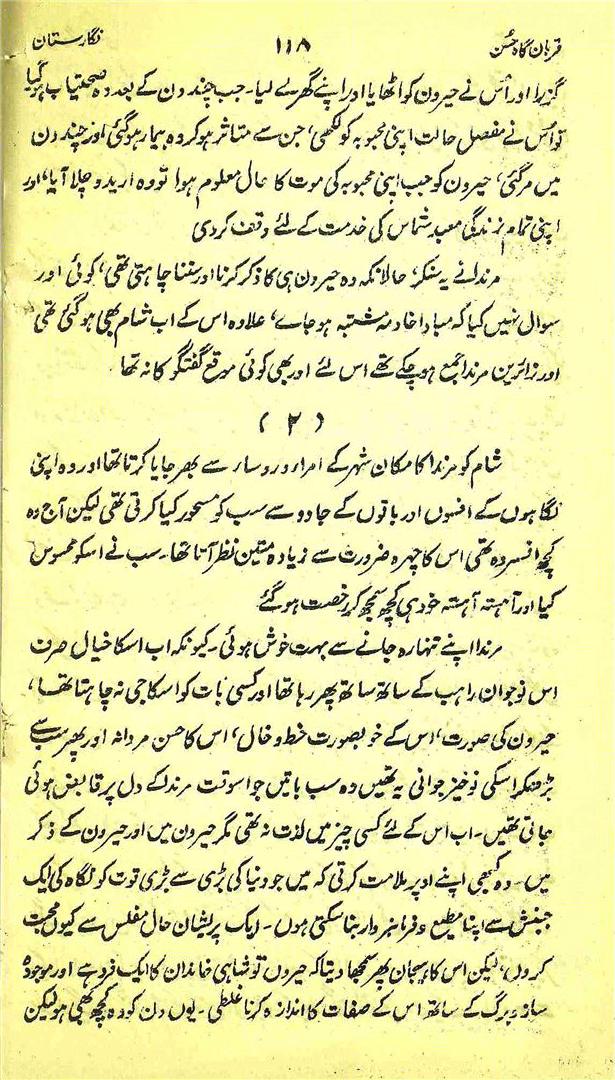 قربان گاہ حسن ۱۱۸ نگارستان
گزرا اور اُس نے حیرون کو اٹھایا اور اپنے گھر لے لیا۔ جب چند دن کے بعد وہ صحتیاب ہوگیا
تو اُس نے مفصل حالت اپنی محبوبہ کو لکھی، جن سے متاثر ہو کر وہ بیمار ہوگئی اور چند دن
میں مرگئی، حیرون کو جب اپنی محبوبہ کی موت کا حال معلوم ہوا تو وہ اریدو چلا آیا، اور
اپنی تمام زندگی معبد شماس کی خدمت کے لئے وقف کر دی
مرندا نے یہ سنکر، حالانکہ وہ حیرون ہی کا ذکر کرنا اور سننا چاہتی تھی، کوئی اور
سوال نہیں کیا کہ مبادا خادمہ مشتبہ ہو جاے، علاوہ اس کے اب شام بھی ہوگئی تھی
اور زائرین مرندا جمع ہو چکے تھے اس لئے اور بھی کوئی موقع گفتگو کا نہ تھا
(۲)
شام کو مرندا کا مکان شہر کے امرار و روسار سے بھر جایا کرتا تھا اور وہ اپنی
نگاہوں کے افسوں اور باتوں کے جادو سے سب کو مسحور کیا کرتی تھی لیکن آج وہ
کچھ افسردہ تھی اس کا چہرہ ضرورت سے زیادہ متین نظر آتا تھا۔ سب نے اسکو محسوس
کیا اور آہستہ آہستہ خود ہی کچھ سمجھ کر رخصت ہوگئے
مرندا اپنے تنہا رہ جانے سے بہت خوش ہوئی۔ کیونکہ اب اسکا خیال صرف
اس نوجوان راہب کے ساتھ ساتھ پھر رہا تھا اور کسی بات کو اسکا جی نہ چاہتا تھا،
حیرون کی صورت، اس کے خوبصورت خط و خال، اس کا حسن مردانہ اور پھر سب سے
بڑھکر اسکی نوخیز جوانی یہ تھیں وہ سب باتیں جو اسوقت مرندا کے دل پر قابض ہوئی
جاتی تھیں۔ اب اس کے لئے کسی چیز میں لذت نہ تھی مگر حیرون میں اور حیرون کے ذکر
میں۔ وہ کبھی اپنے اوپر ملامت کرتی کہ میں جو دنیا کی بڑی سے بڑی قوت کو نگاہ کی ایک
جنبش سے اپنا مطیع و فرمانبردار بنا سکتی ہوں۔ ایک پریشان حال مفلس سے کیوں محبت
کروں، لیکن اس کا ہیجان پھر سمجھا دیتا کہ حیروں تو شاہی خاندان کا ایک فرد ہے اور موجودہ
ساز و برگ کے ساتھ اس کے صفات کا اندازہ کرنا غلطی۔ یوں دن کو وہ کچھ بھی ہو لیکن